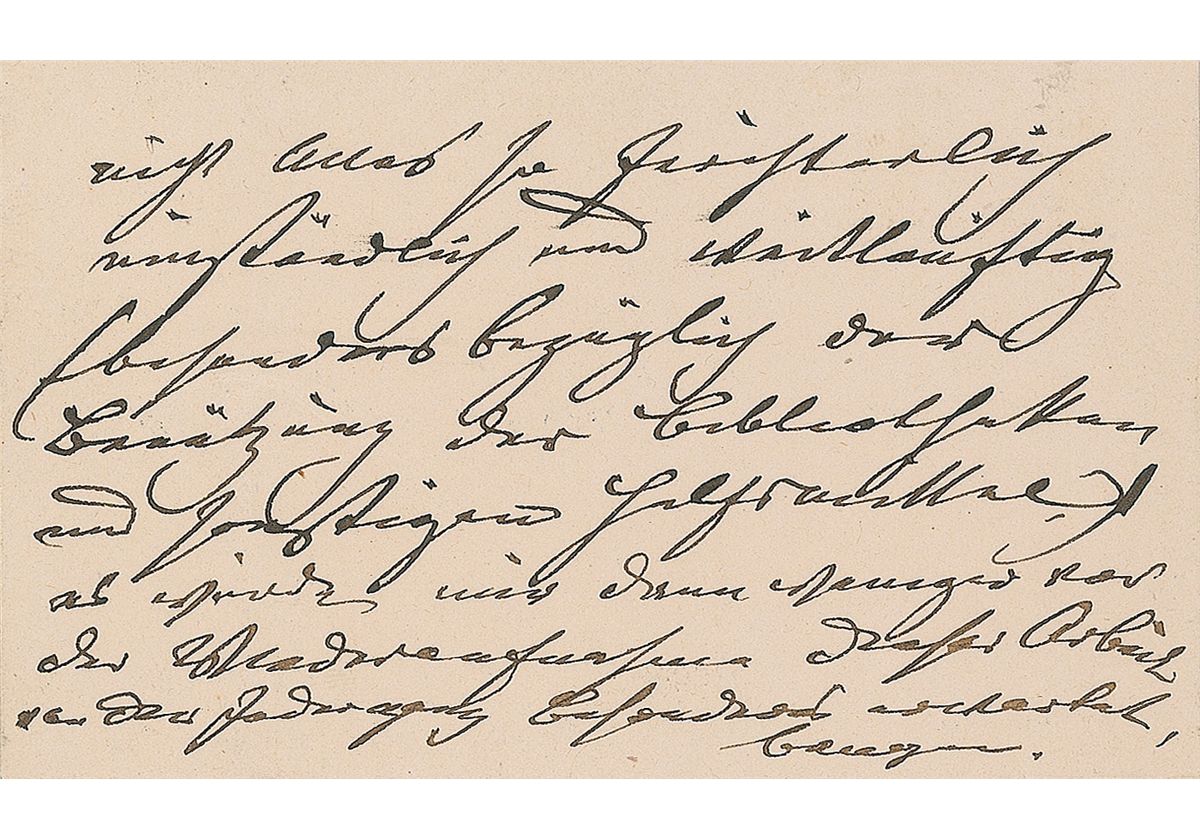 nicht Alles so fürchterlich
umständlich und weitläuftig
(besonders bezüglich der
Benützung der Bibliotheken
und sonstigen Hilfsmittel)
es würde mir dann weniger vor
der Wiederaufnahme dieser Arbeit
von der Jedermann besonders erwartet,
bangen.